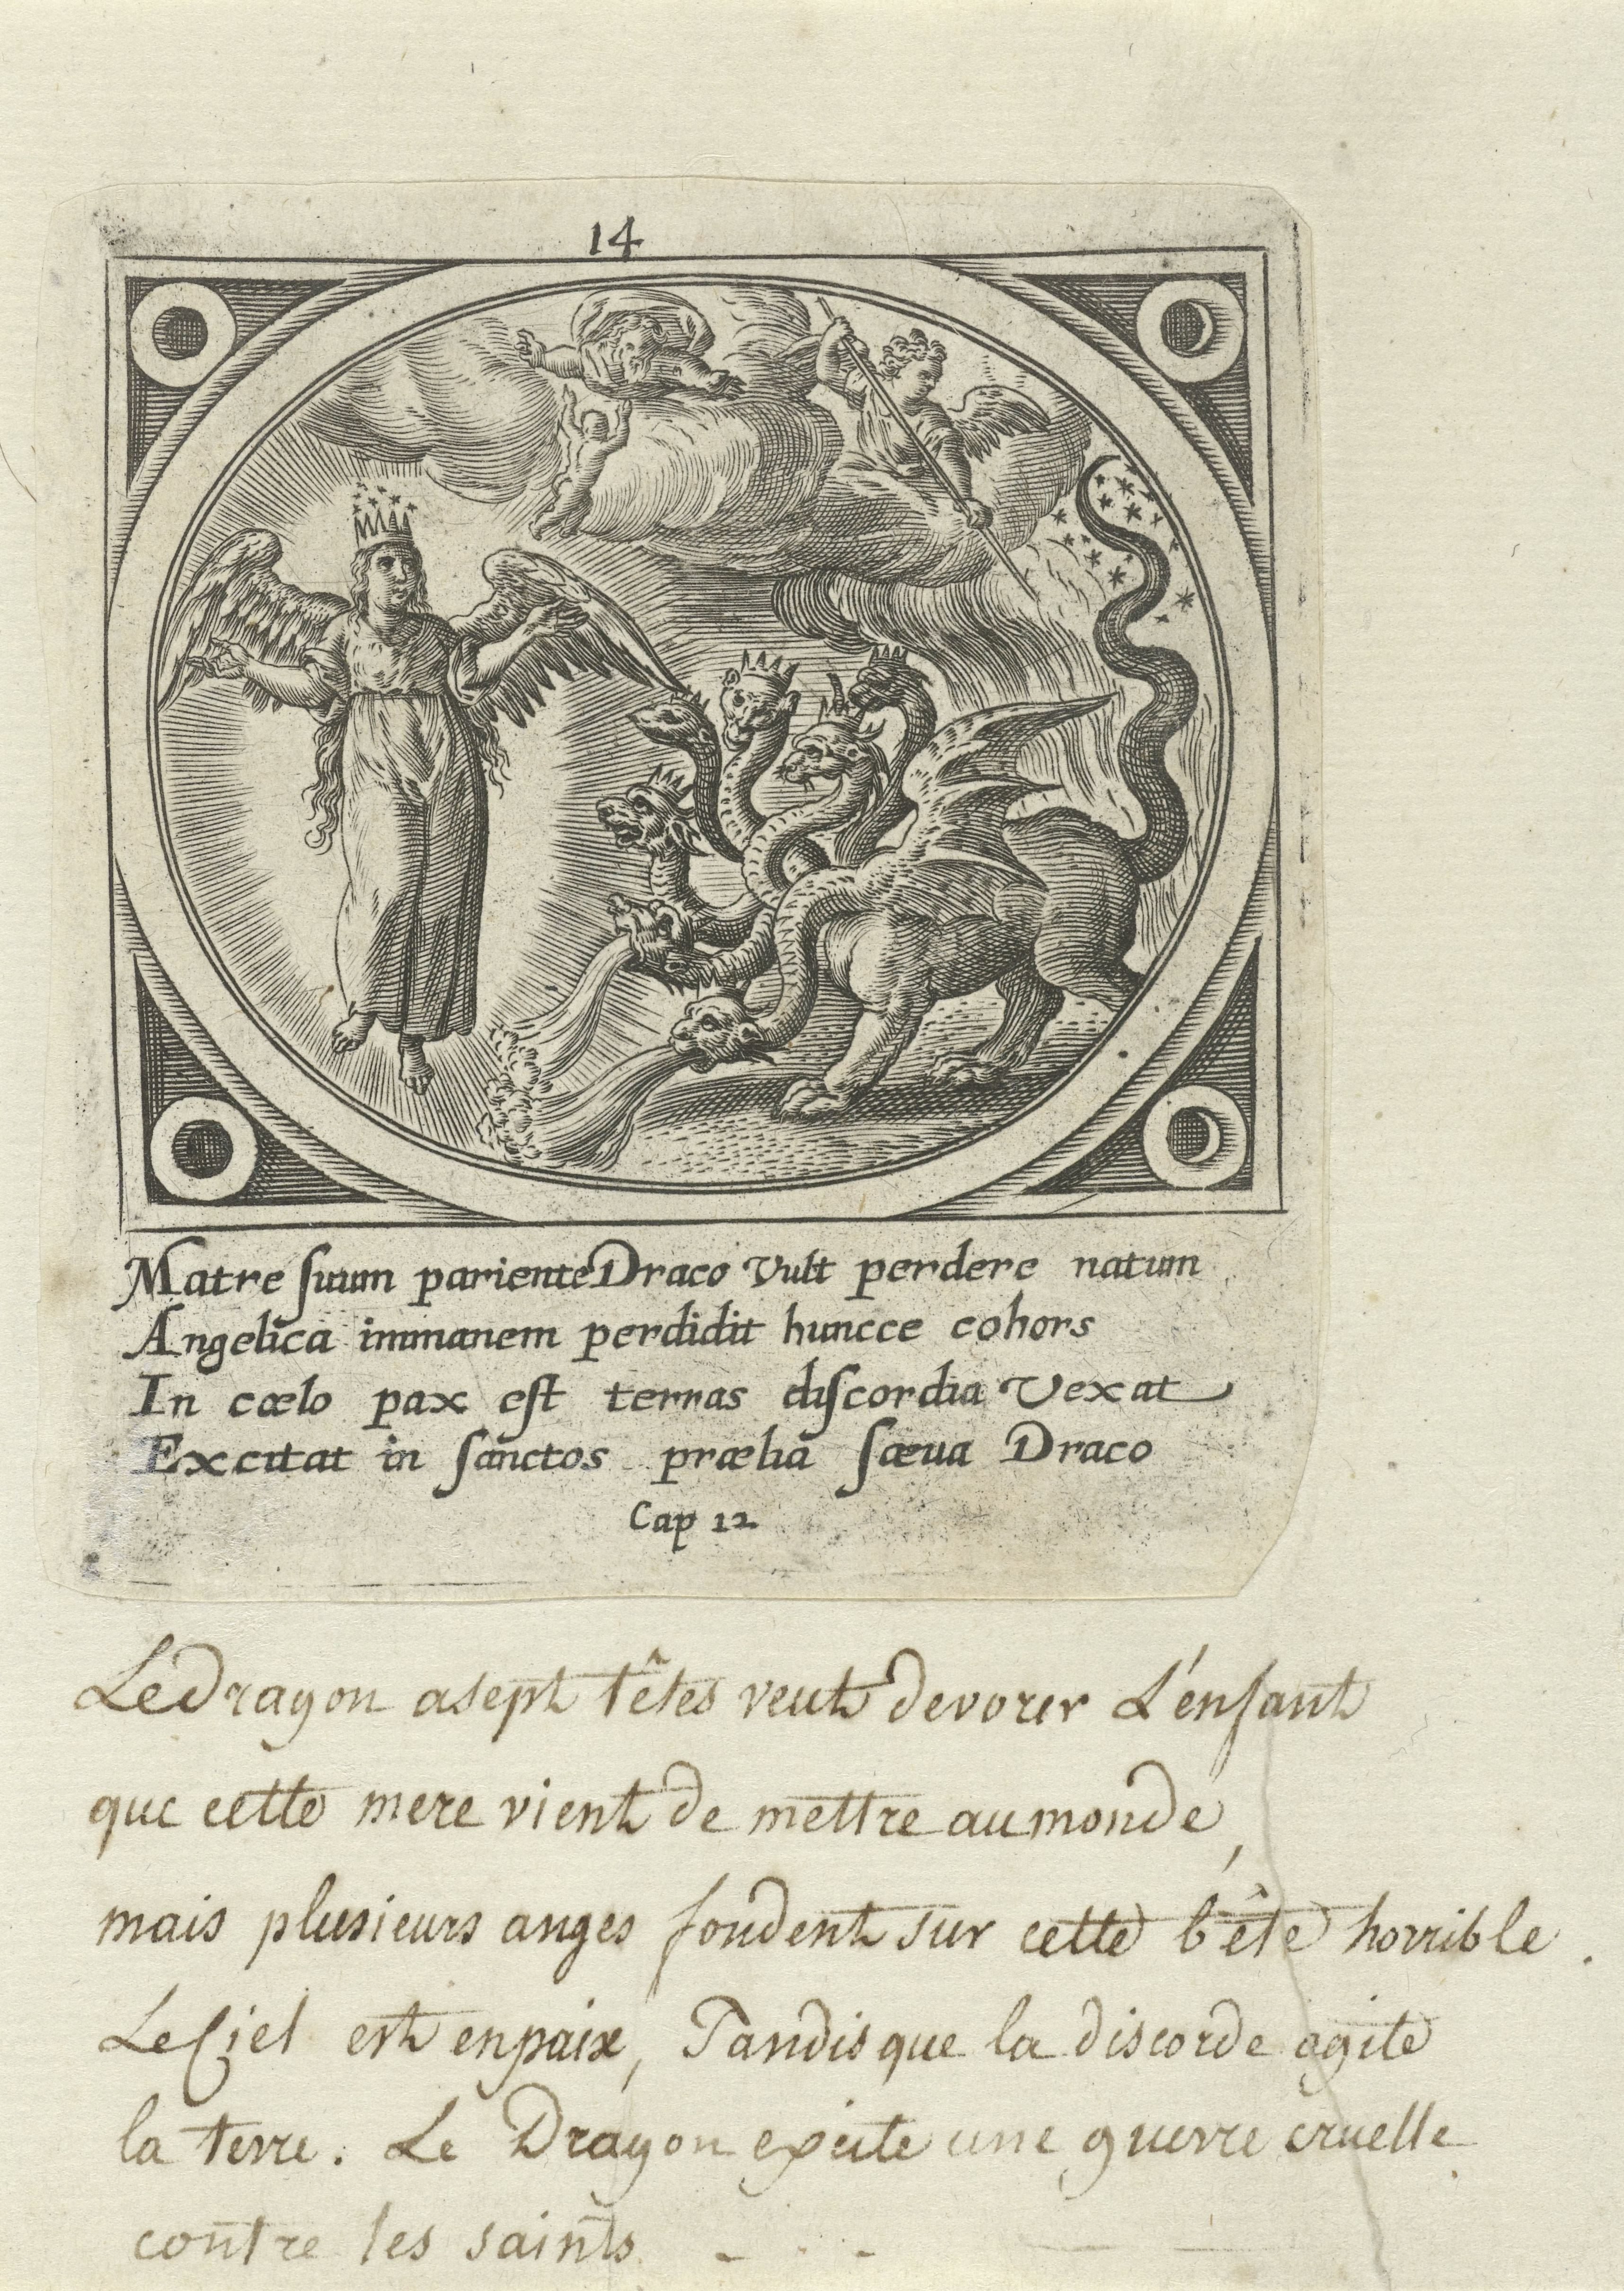 14
Matre suum parientē Draco Vult perdere natum
Angelica immanem perdidit huncce cohors
In cœlo pax est terras discordia Vexat
Excitat in sanctos prælia sæua Draco
Cap 12
Le Dragon a sept têtes veut devorer L'énfant
que cette mere vient de mettre au monde,
mais plusieurs anges fondent sur cette bête horrible.
Le Ciel est en paix, Tandis que la discorde agite
la terre. Le Dragon excite une guerre cruelle
contre les saints